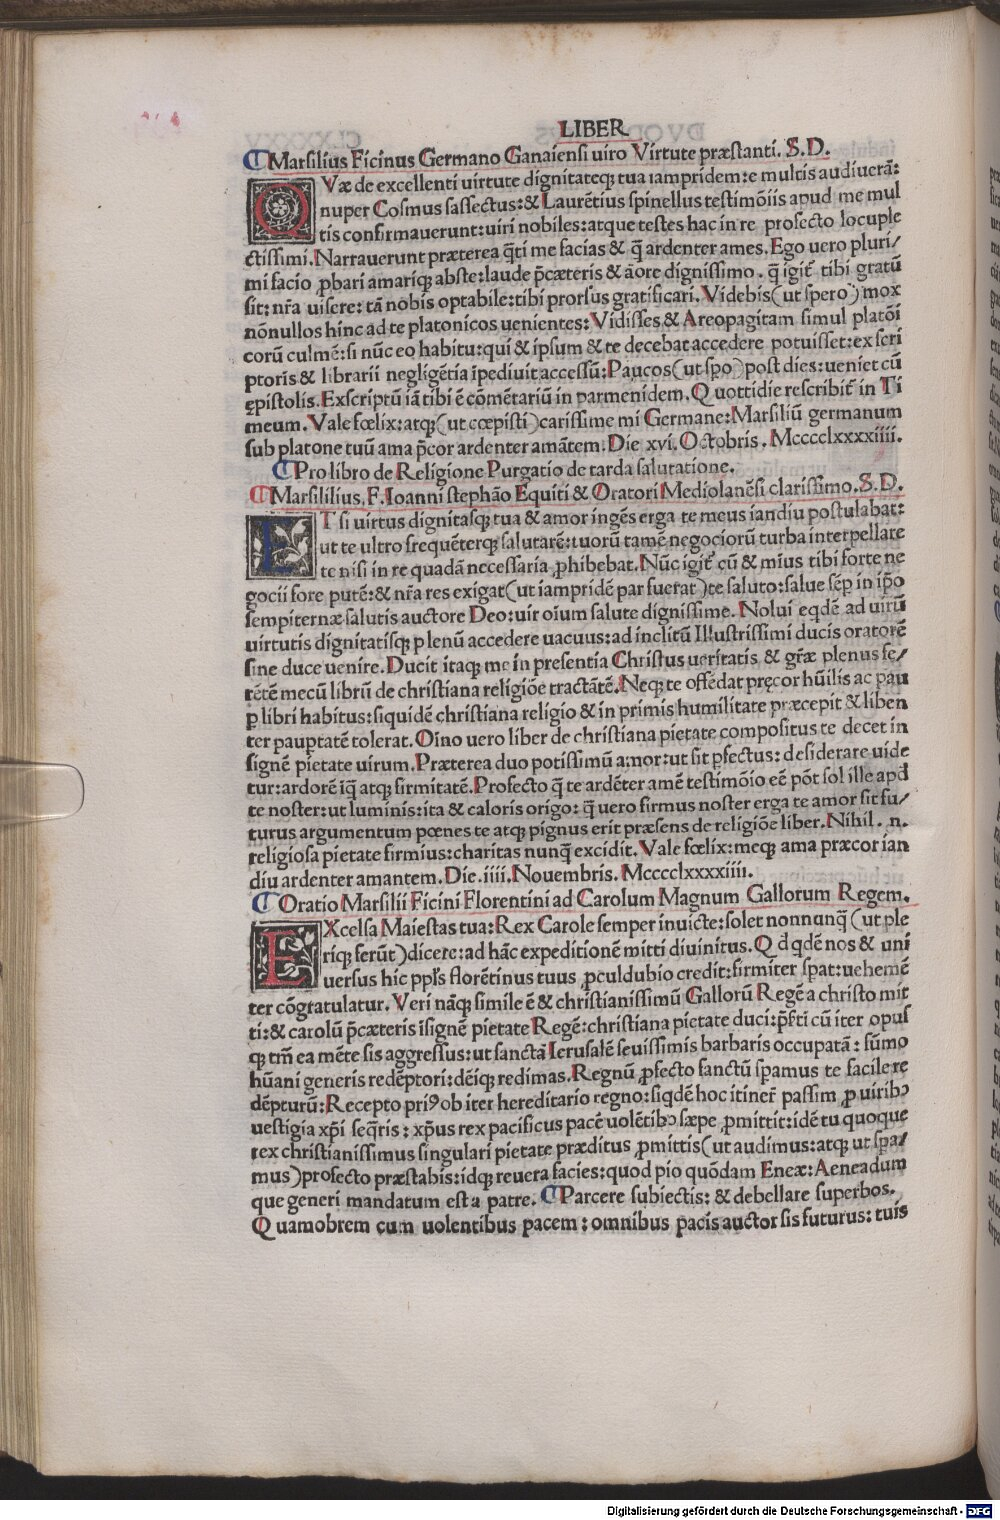 LIBER
Marsilius Ficinus Germano Ganaiensi uiro Virtute præstanti. S.D.
QVæ de excellenti uirtute dignitateqꝫ tua iampridem: e multis audiuerā:
nuper Cosmus sassectus: & Laurētius spinellus testimōiis apud me mul
tis confirmauerunt: uiri nobiles: atque testes hac in re profecto locuple
ctissimi. Narrauerunt præterea q̄ti me facias & q̄ ardenter ames. Ego uero pluri/
mi facio ꝓbari amariqꝫ abste: laude p̄cæteris & āore dignissimo. q̄ igit̃ tibi gratū
sit: nr̃a uisere: tā nobis optabile: tibi prorsus gratificari. Videbis (ut spero) mox
nōnullos hinc ad te platonicos uenientes: Vidisses & Areopagitam simul platōi
corū culmē: si nūc eo habitu: qui & ipsum & te decebat accedere potuisset: ex scri
ptoris & librarii negligētia īpediuit accessū: Paucos (ut spo) post dies: ueniet cū
ępistolis. Exscriptū iā tibi ē cōmētariū in parmenidem. Quottidie rescribit̃ in Ti
meum. Vale fœlix: atqꝫ (ut cœpisti) carissime mi Germane: Marsiliū germanum
sub platone tuū ama p̄cor ardenter amātem. Die xvi. Octobris. Mcccclxxxxiiii.
Pro libro de Religione Purgatio de tarda salutatione.
Marsililius. F. Ioanni stephāo Equiti & Oratori Mediolanēsi clarissimo. S.D.
ETsi uirtus dignitasqꝫ tua & amor ingēs erga te meus iandiu postulabat:
ut te ultro frequēterqꝫ salutarē: tuorū tamē negociorū turba interpellare
te nisi in re quadā necessaria ꝓhibebat. Nūc igit̃ cū & mius tibi forte ne
gocii fore putē: & nr̃a res exigat (ut iampridē par fuerat) te saluto: salue sēp in ip̃o
sempiternæ salutis auctore Deo: uir oium salute dignissime. Nolui eqdē ad uirū
uirtutis dignitatisqꝫ plenū accedere uacuus: ad inclitū Illustrissimi ducis oratorē
sine duce uenire. Ducit itaqꝫ me in presentia Christus ueritatis & gr̃æ plenus fe/
rētē mecū librū de christiana religiōe tractātē. Neqꝫ te offēdat pręcor hūilis ac pau
ꝑ libri habitus: siquidē christiana religio & in primis humilitate præcepit & liben
ter pauꝑtatē tolerat. Oīno uero liber de christiana pietate compositus te decet in
signē pietate uirum. Præterea duo potissimū amor: ut sit ꝑfectus: desiderare uide
tur: ardorē īq̄ atqꝫ firmitatē. Profecto q̄ te ardēter amē testimōio eē pōt sol ille apd
te noster: ut luminis: ita & caloris origo: q̄ uero firmus noster erga te amor sit fu/
turus argumentum pœnes te atqꝫ pignus erit præsens de religiōe liber. Nihil. n.
religiosa pietate firmius: charitas nunq̄ excidit. Vale fœlix: meqꝫ ama præcor ian
diu ardenter amantem. Die. iiii. Nouembris. Mcccclxxxxiiii.
Oratio Marsilii Ficini Florentini ad Carolum Magnum Gallorum Regem.
EXcelsa Maiestas tua: Rex Carole semper inuicte: solet nonnunq̄ (ut ple
riqꝫ ferūt) dicere: ad hāc expeditionē mitti diuinitus. Qd qdē nos & uni
uersus hic pp̃ls florētinus tuus ꝓculdubio credit: firmiter sꝑat: uehemē
ter cōgratulatur. Veri nāqꝫ simile ē & christianissimū Gallorū Regē a christo mit
ti: & carolū p̄cæteris īsignē pietate Regē: christiana pietate duci: p̄srti cū iter opus
qꝫ tm̃ ea mēte sis aggressus: ut sanctā Ierusalē seuissimis barbaris occupatā: sūmo
hūani generis redēptori: dēiqꝫ redimas. Regnū ꝓfecto sanctū sꝑamus te facile re
dēpturū: Recepto priꝰ ob iter hereditario regno: siqdē hoc itiner̃ passim ꝓ uiribꝰ
uestigia xp̃i seq̃ris: xp̃us rex pacificus pacē uolētibꝰ sæpe ꝓmittit: idē tu quoque
rex christianissimus singulari pietate præditus ꝓmittis (ut audimus: atqꝫ ut sꝑa/
mus) profecto præstabis: idqꝫ reuera facies: quod pio quōdam Eneæ: Aeneadum
que generi mandatum est a patre. Parcere subiectis: & debellare superbos.
Quamobrem cum uolentibus pacem: omnibus pacis auctor sis futurus: tuis
Digitalisierung gefördert durch die Deutsche Forschungsgemeinschaft - DFG